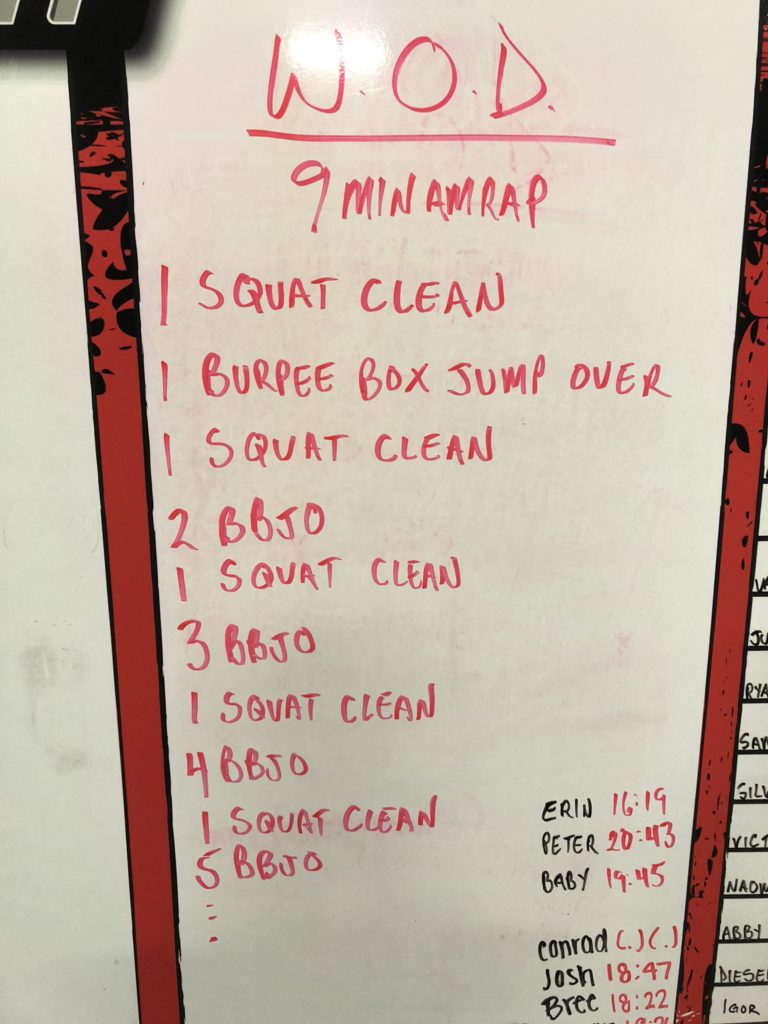 W.O.D.
9 MIN AMRAP
1 SQUAT CLEAN
1 BURPEE BOX JUMP OVER
1 SQUAT CLEAN
2 BBJO
1 SQUAT CLEAN
3 BBJO
1 SQUAT CLEAN
4 BBJO
1 SQUAT CLEAN
5 BBJO
ERIN 16:19
PETER 20:43
BABY 19:45
conrad (.)(.)
Josh 18:47
Bree 18:22
ABBY
IGOR